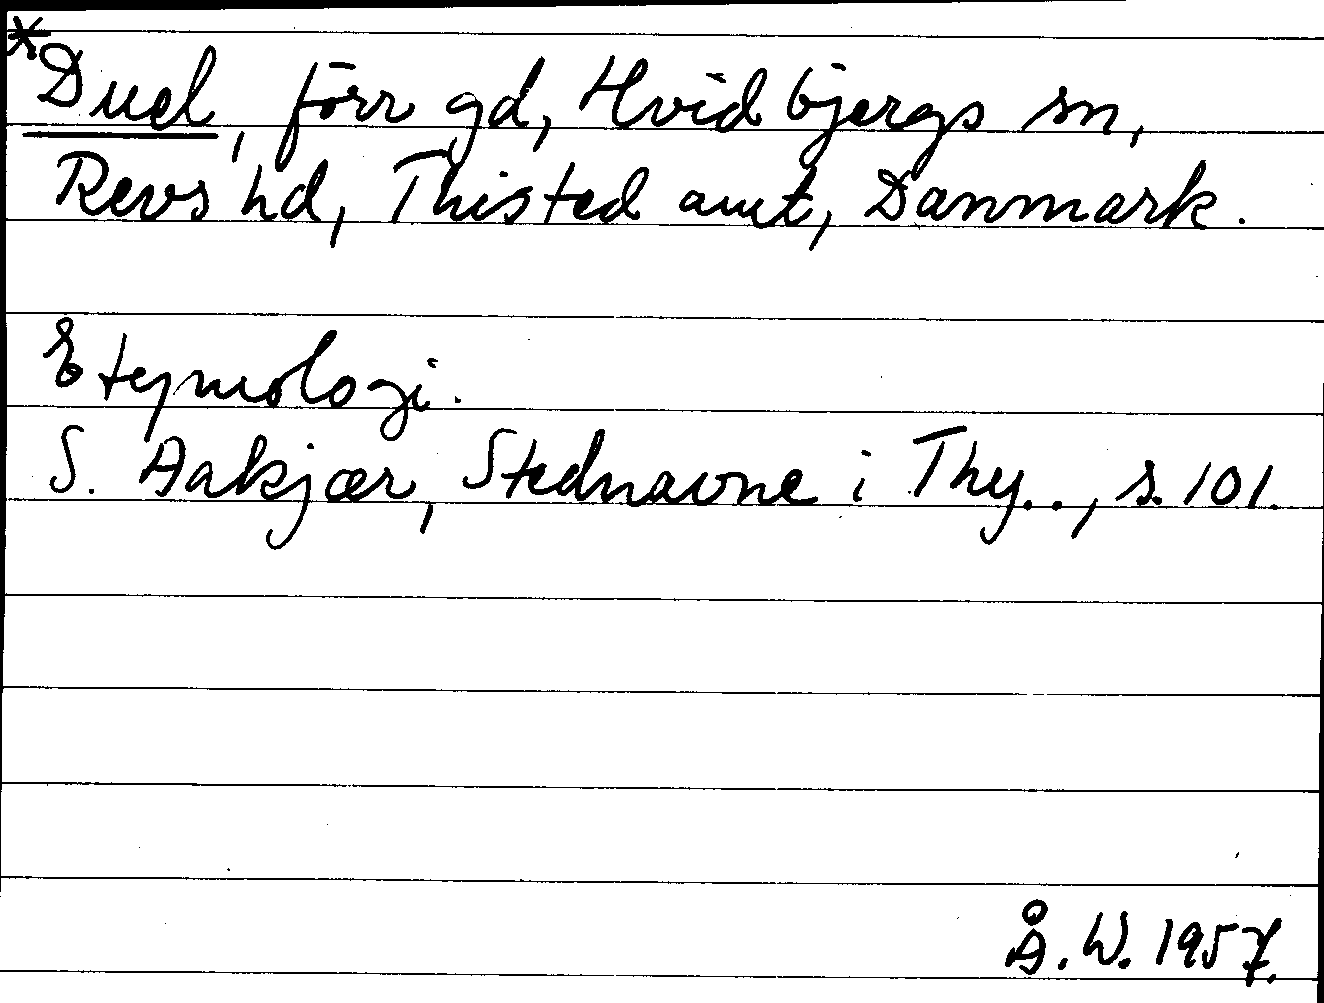 *Duel, förr gd, Hvidbjergs sn,
Revs hd, Thisted amt, Danmark.
Etymologi.
S. Aakjær, Stednavne i Thy.., s. 101.
Å. W. 1957.